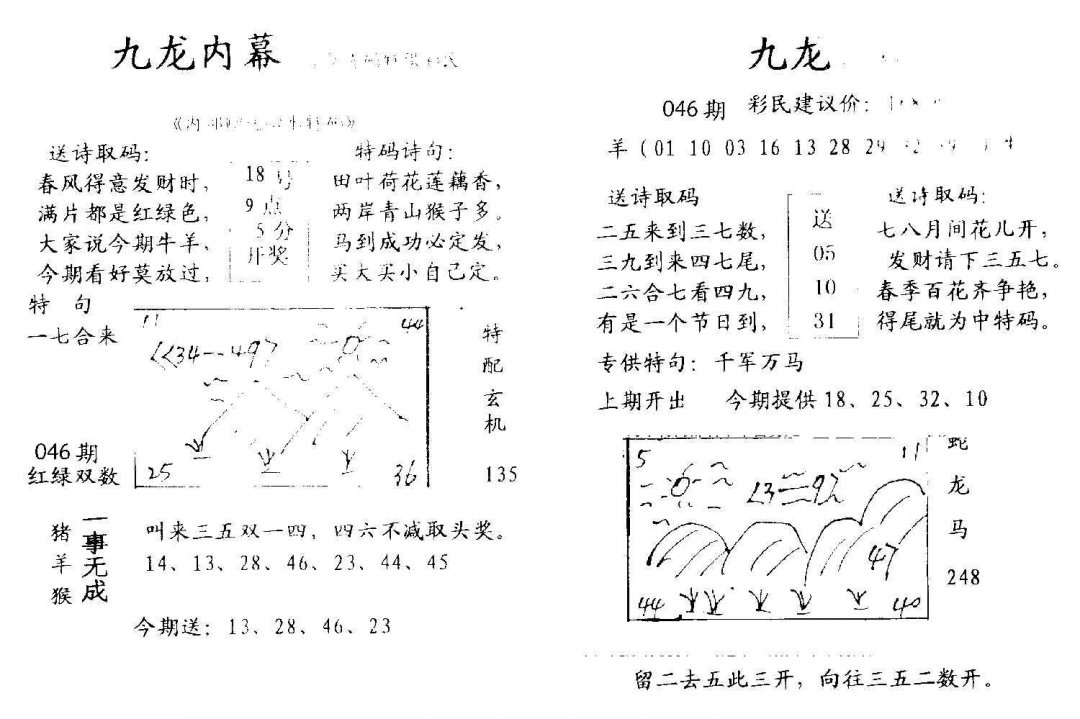 九龙内幕
送诗取码：
春风得意发财时，
满片都是红绿色，
大家说今期牛羊，
今期看好莫放过，
18号
9点
5分
开奖
特码诗句：
田叶荷花莲藕香，
两岸青山猴子多。
马到成功必定发，
买大买小自己定。
特 句
一七合来
046期
红绿双数
11
44
25
36
特
配
玄
机
135
猪
羊
猴
一事无成
叫来三五双一四，四六不减取头奖。
14、13、28、46、23、44、45
今期送：13、28、46、23
九龙
046期 彩民建议价：
羊（01 10 03 16 13 28 29
送诗取码
二五来到三七数，
三九到来四七尾，
二六合七看四九，
有是一个节日到，
送
05
10
31
送诗取码：
七八月间花儿开，
发财请下三五七。
春季百花齐争艳，
得尾就为中特码。
专供特句：千军万马
上期开出 今期提供18、25、32、10
5
11
47
44
40
蛇
龙
马
248
留二去五此三开，向往三五二数开。